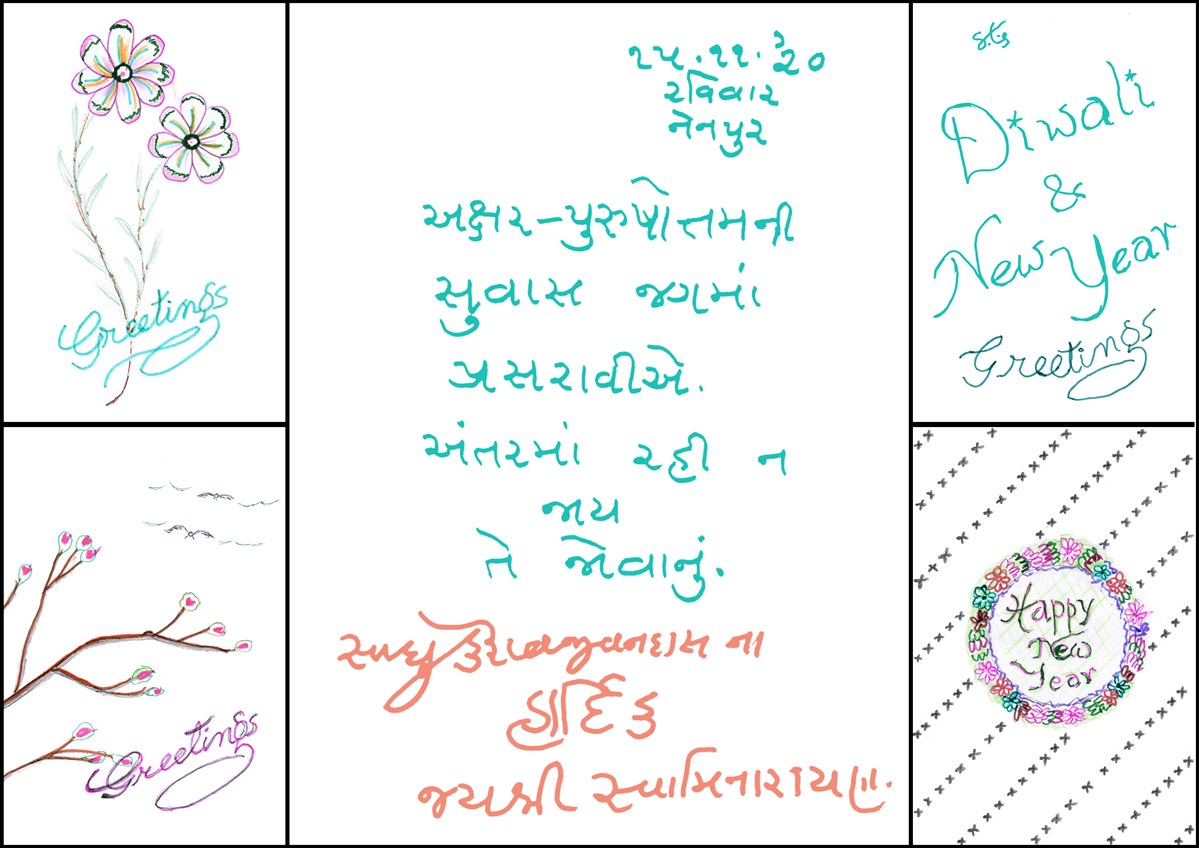 Greetings
Greetings
૧૫.૧૧.'૨૦
રવિવાર
નેનપુર
અક્ષર-પુરુષોત્તમની
સુવાસ જગમાં
પ્રસરાવીએ.
અંતરમાં રહી ન
જાય
તે જોવાનું.
સાધુ કેશવજીવનદાસ ના
હાર્દિક
જયશ્રી સ્વામિનારાયણ.
Diwali
&
New Year
Greetings
Happy
New
Year